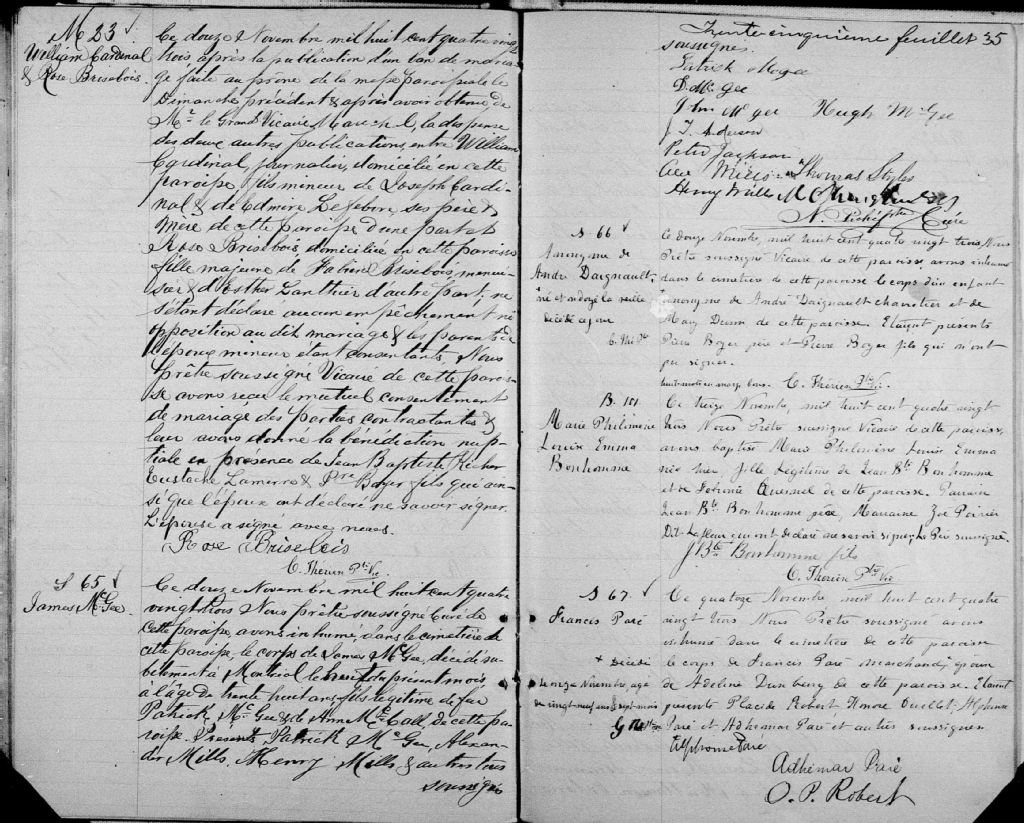 M 23
William Cardinal
& Rose Brisebois.
Ce douze Novembre mil huit cent quatre vingt
trois, après la publication d'un ban de maria-
ge faite au prône de la messe paroissiale le
Dimanche précédent & après avoir obtenu de
Mr. le Grand Vicaire Maréchal, la dispense
des deux autres publications, entre William
Cardinal, journalier, domicilié en cette
paroisse, fils mineur de Joseph Cardi-
nal & de Edmire Lefebvre, ses père &
mère de cette paroisse d'une part et
Rose Brisebois, domiciliée en cette paroisse
fille majeure de Fabien Brisebois menui-
sier & d'Esther Lanthier d'autre part; ne
s'étant déclaré aucun empêchement ni
opposition au dit mariage & les parents de
l'époux mineur étant consentants, Nous
prêtre soussigné Vicaire de cette parois-
se avons reçu le mutuel consentement
de mariage des parties contractantes &
leur avons donné la bénédiction nup-
tiale en présence de Jean Baptiste Richer
Eustache Lamarre & Pre Boyer fils qui ain-
si que l'époux ont déclaré ne savoir signer.
L'épouse a signé avec nous.
Rose Brisebois
C. Thérien Ptre Vic
S 65
James McGee.
Ce douze Novembre mil huit cent quatre
vingt trois Nous prêtre soussigné Curé de
cette paroisse, avons inhumé, dans le cimetière de
cette paroisse, le corps de James McGee, décédé su-
bitement à Montréal le neuf du présent mois,
à l'âge de trente huit ans, fils légitime de feu
Patrick McGee & de Ann McCall de cette pa-
roisse. Présents, Patrick McGee, Alexan-
der Mills, Henry Mills & autres tous
soussignés
Trente cinquième feuillet 35
soussigné.
Patrick Mcgee
D. McGee
John McGee Hugh McGee
J. T. Anderson
Peter Jackson
Alex Mills Thomas Styles
Henry Mills
N. Piché Ptre Curé
S 66
Anonyme de
André Daignault,
né et ondoyé la veille
décédé ce jour
C. Th. Ptr
Ce douze Novembre, mil huit cent quatre vingt trois, Nous
Prêtre soussigné Vicaire de cette paroisse, avons inhumé
dans le cimetière de cette paroisse le corps d'un enfant
anonyme de André Daignault charretier et de
Mary Dunn de cette paroisse. Etaient présents
Pierre Boyer père et Pierre Boyer fils qui n'ont
pu signer.
C. Thérien Ptre Vic.
B. 101
Marie Philomène
Louise Emma
Bonhomme
Ce treize Novembre, mil huit cent quatre vingt
trois Nous Prêtre soussigné Vicaire de cette paroisse,
avons baptisé Marie Philomène Louise Emma
née hier fille légitime de Jean Bte Bonhomme
et de Quesnel de cette paroisse. Parrain
Jean Bte Bonhomme père, Marraine Zoé Poirier
Dit Lafleur qui ont déclaré ne savoir signer, Le Père soussigné.
J Bte Bonhomme fils
C. Thérien Ptre Vic
S 67.
Francis Paré
+ décédé
le onze Novembre, agé
de vingt-neuf ans & sept mois
Ce quatorze Novembre mil huit cent quatre
vingt trois Nous Prêtre soussigné avons
inhumé dans le cimetière de cette paroisse
le corps de Francis Paré marchand, + époux
de Adeline Dunberry de cette paroisse. Etaient
présents Placide Robert Honoré Ouellet, Alphonse
Paré et Adhémar Paré et autres soussignés
Alphonse Paré
Adhémar Paré
O. P. Robert